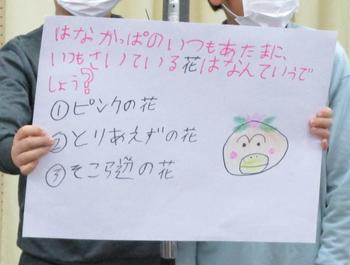 はなかっぱのいつもあたまに、
いつもさいている花はなんていうで
しょう?
①ピンクの花
②とりあえずの花
③そこら辺の花